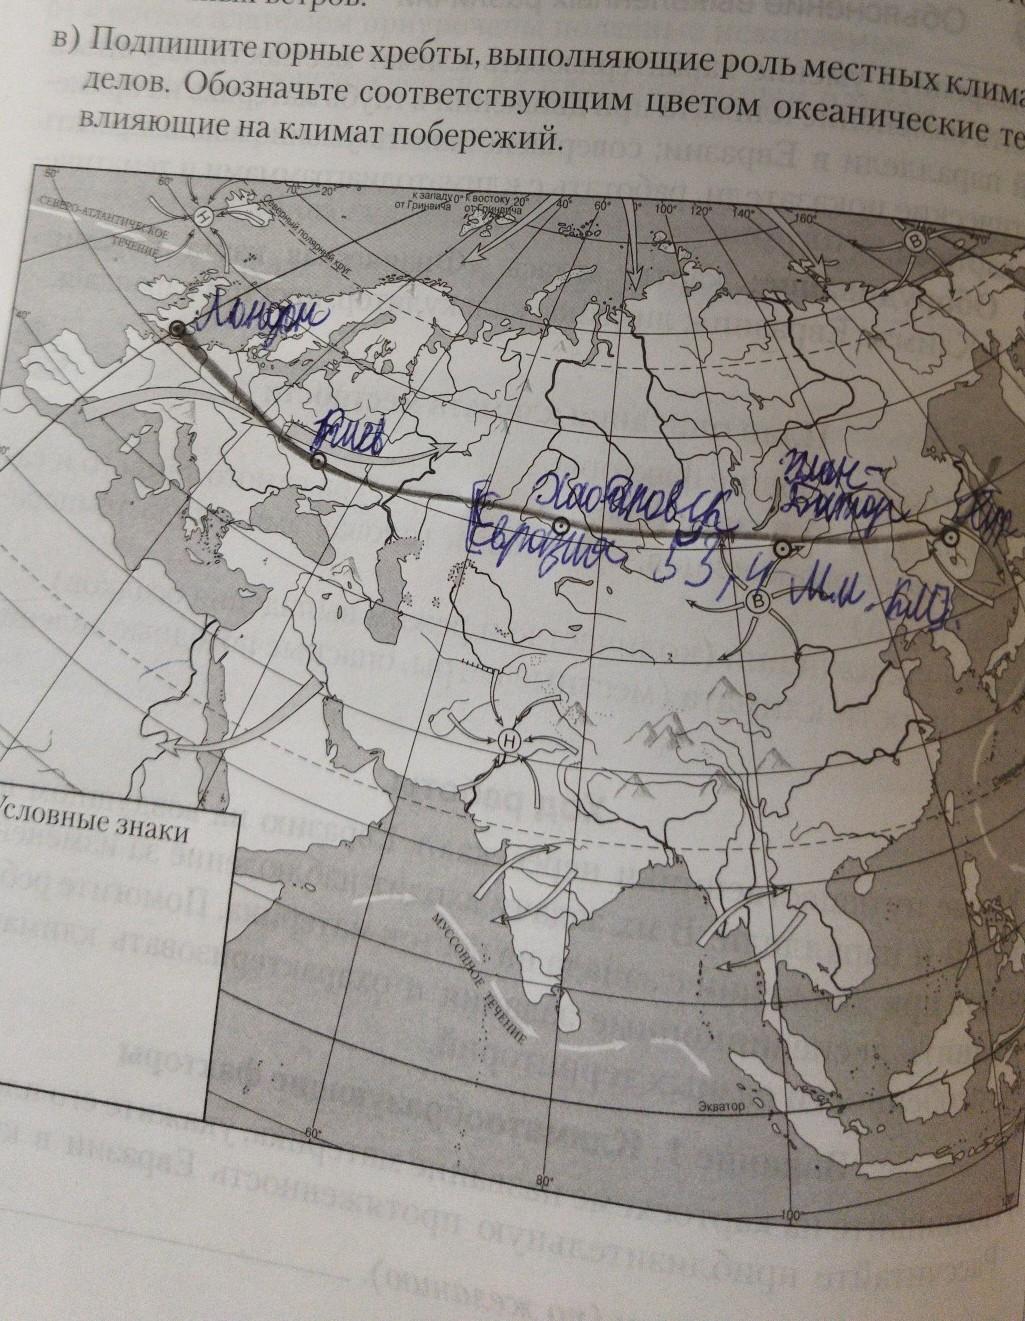 ветров.
в) Подпишите горные хребты, выполняющие роль местных клима
делов. Обозначьте соответствующим цветом океанические те
влияющие на климат побережий.
50° 60° 70° 20° к западу 0° к востоку 20° 40° 60° 80° 100° 120° 140° 160°
от Гринвича от Гринвича
СЕВЕРО-АТЛАНТИЧЕСКОЕ
ТЕЧЕНИЕ
Северный полярный круг
Н
В
40°
Лондон
Киев
Хабаровск
Улан-
Батор
Евразия 53,4 млн. км².
В
Н
Условные знаки
МУССОННОЕ ТЕЧЕНИЕ
Экватор
60°
80°
100°